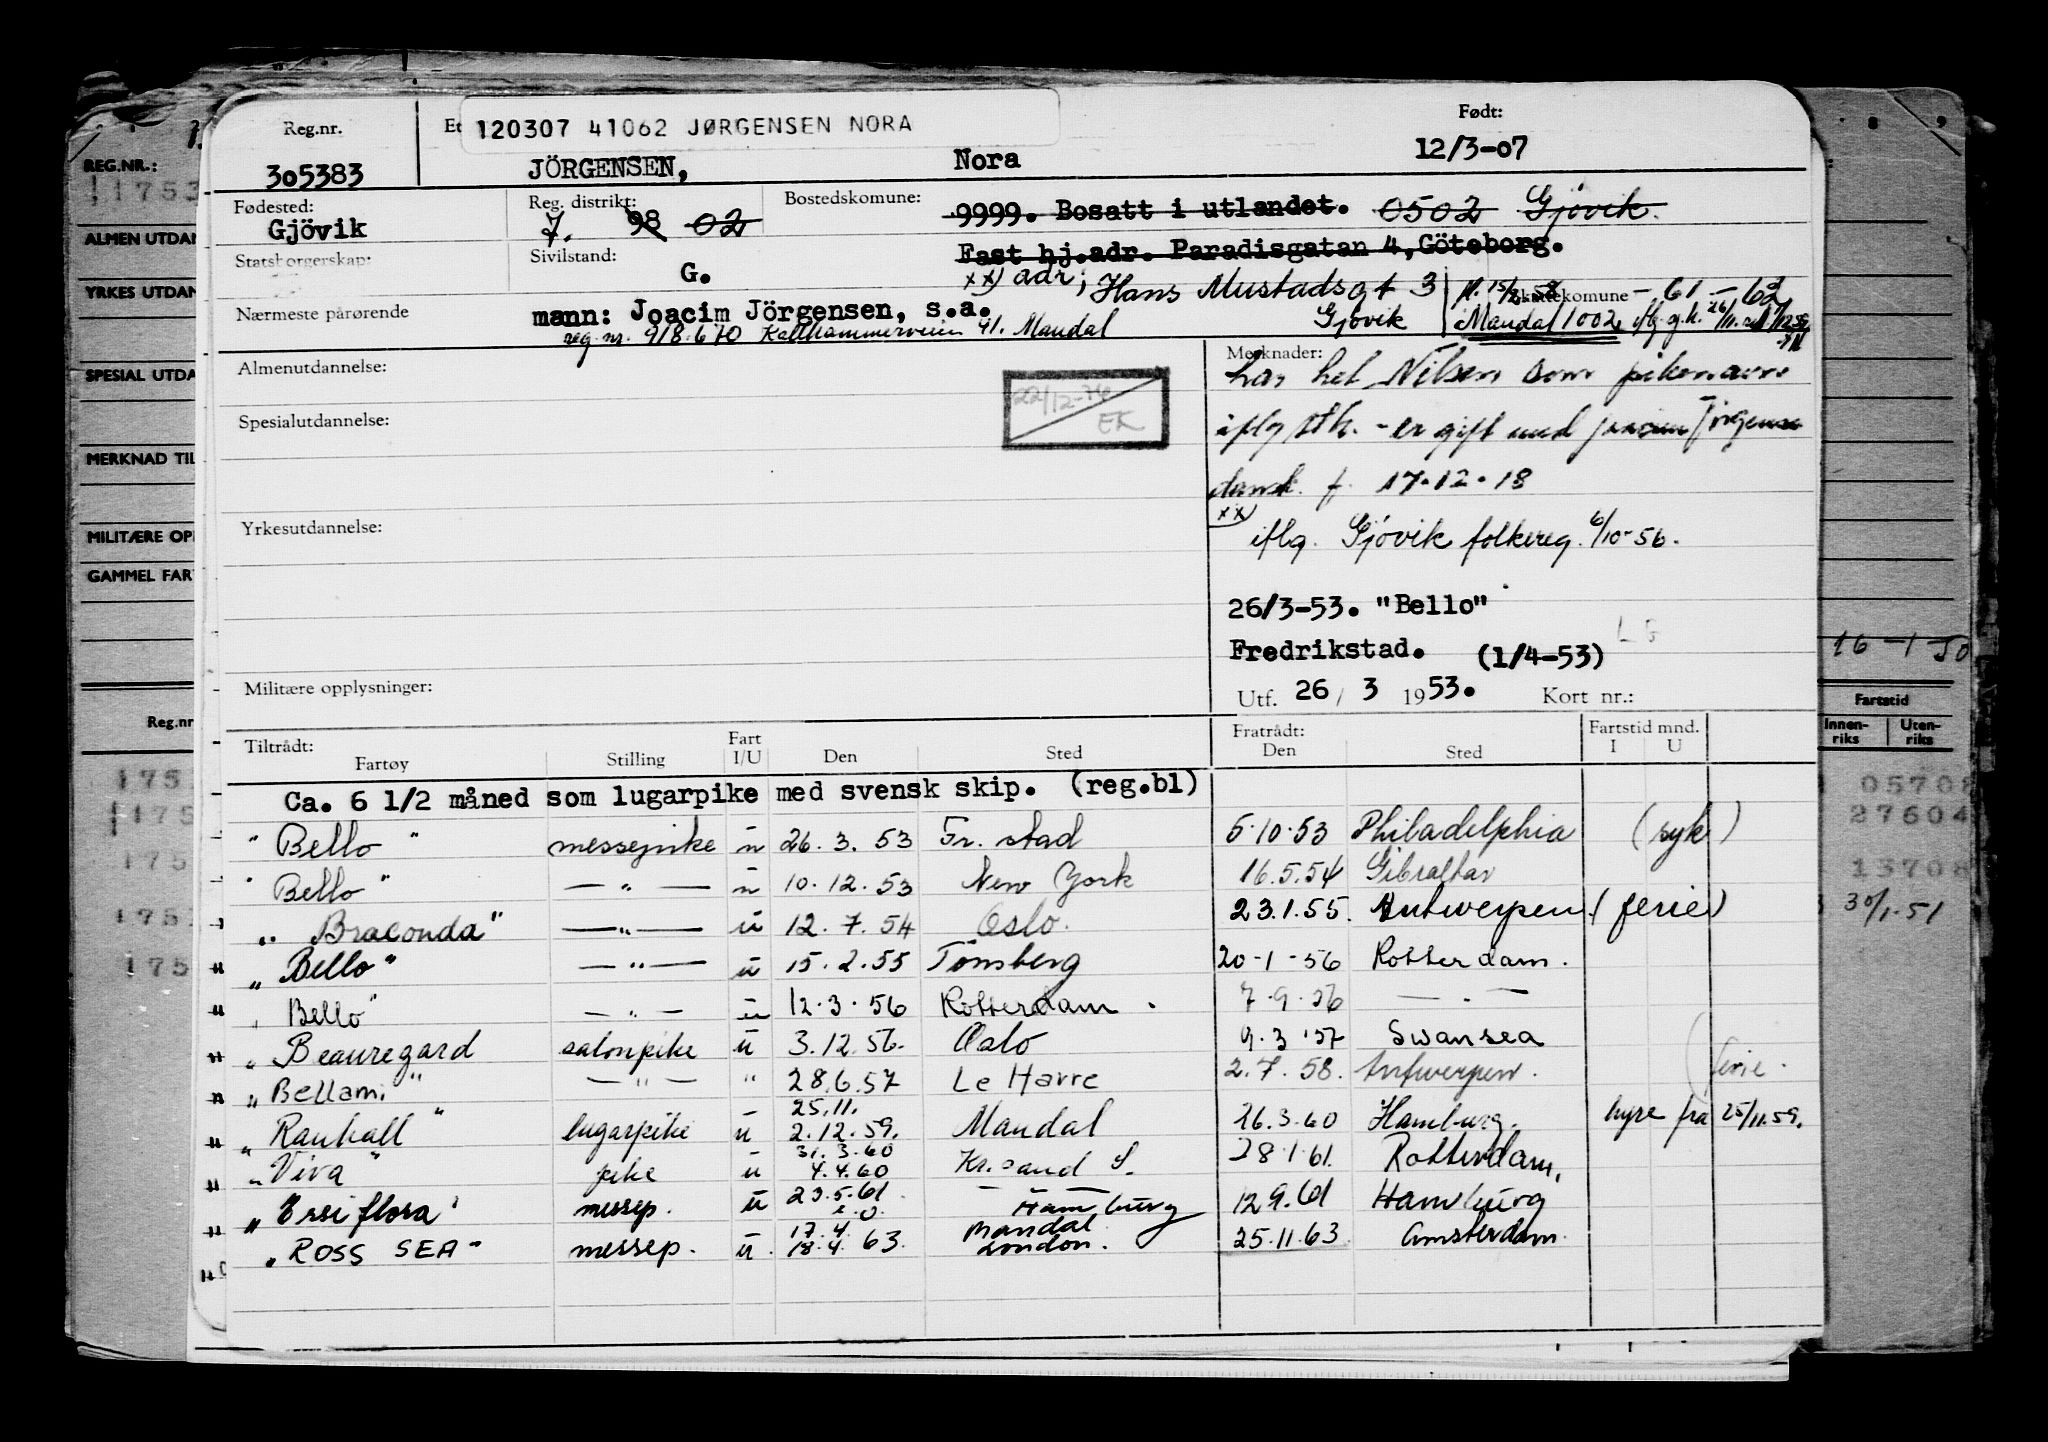 Reg.nr.
Et
120307 41062 JØRGENSEN NORA
Født:
305383
JÖRGENSEN,
Nora
12/3-07
Fødested:
Gjövik
Reg. distrikt:
7. 98 02
Bostedskomune:
9999. Bosatt i utlandet. 0502 Gjøvik.
Fast hj.adr. Paradisgatan 4, Göteborg.
Statsborgerskap:
Sivilstand:
G.
xx) adr; Hans Mustadsgt 3
Gjøvik
Skattekomune - 61 - 62
Mandal 1002
Nærmeste pårørende
mann: Joacim Jörgensen, s.a.
reg. nr. 918.670 Kallhammerveien 41. Mandal
Almenutdannelse:
Spesialutdannelse:
22/12-76
EK
Yrkesutdannelse:
Militære opplysninger:
Merknader:
har het Nilsen som pikenavn
iflg stk. - er gift med Joacim Jörgensen
dansk f. 17-12-18
xx)
iflg. Gjövik folkereg. 6/10-56.
26/3-53. "Bello"
Fredrikstad. (1/4-53)
Utf. 26 / 3 1953. Kort nr.:
Tiltrådt:
Fartøy Stilling Fart I/U Den Sted
Fratrådt:
Den Sted
Fartstid mnd.
I U
Ca. 6 1/2 måned som lugarpike med svensk skip. (reg.bl)
"Bello" messepike u 26.3.53 Fr. stad 5.10.53 Philadelphia (syk)
"Bello" — " — u 10.12.53 New York 16.5.54 Gibraltar
"Braconda" — " — u 12.7.54 Oslo. 23.1.55. Antwerpen (ferie)
"Bello" — " — u 15.2.55 Tønsberg 20-1-56 Rotterdam.
"Bello" — " — u 12.3.56 Rotterdam. 7.9.56 — " —
"Beauregard salonpike u 3.12.56. Oslo 9.3.57 Swansea
"Bellami" — " — " 28.6.57 Le Havre 2.7.58. Antwerpen. (ferie.
"Ranhall" lugarpike u 25.11. 2.12.59. Mandal 26.3.60 Hamburg. hyre fra 25/11.59.
"Viva" pike u 31.3.60 4.4.60 Kr.sand S. 28.1.61. Rotterdam.
"Ersi flora" messep. u 23.5.61 Hamburg 12.9.61 Hamburg
"ROSS SEA" messep. u. 17.4. 18.4.63. Mandal London. 25.11.63 Amsterdam.
REG.NR.:
ALMEN UTDAN
YRKES UTDAN
SPESIAL UTDA
MERKNAD TIL
MILITÆRE OP
GAMMEL FAR
Reg.nr
8 9
16-1-50
Fartstid
Innen-
riks
Uten-
riks
05708
27604
13708
30/1-51